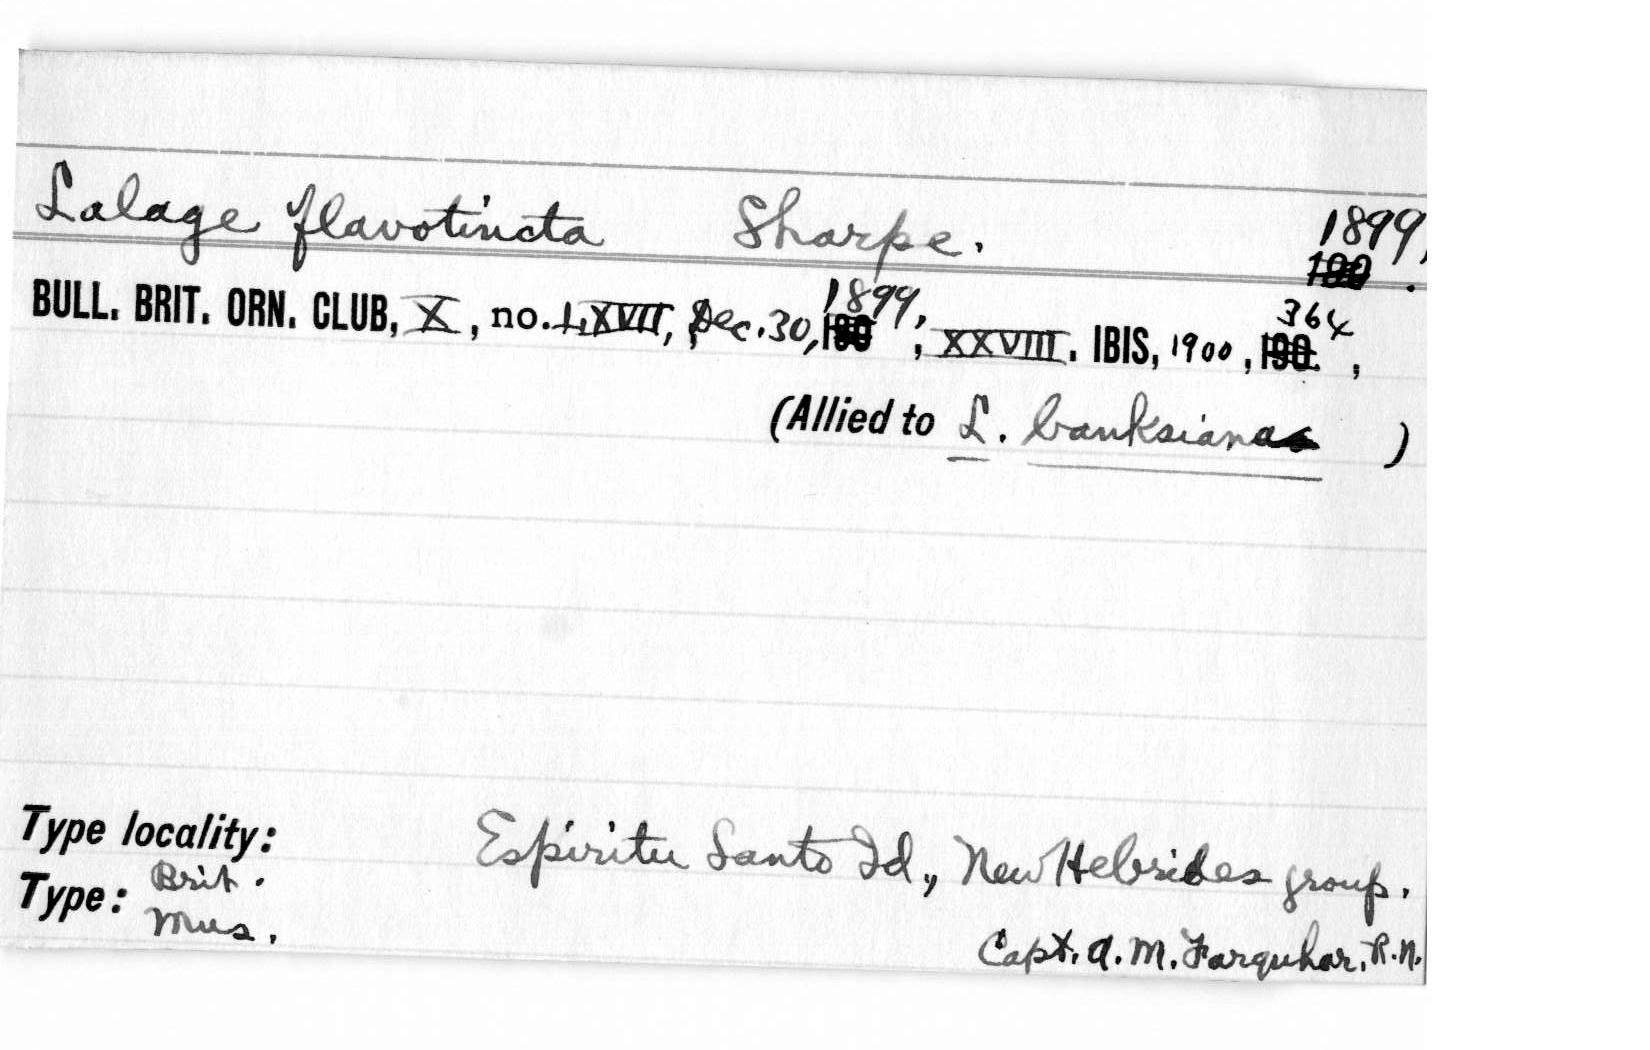 Lalage flavotincta Sharpe. 1899,
190 .
BULL. BRIT. ORN. CLUB, X, no. LXVII, Dec. 30, 1899, XXVIII. IBIS, 1900, 364,
(Allied to L. banksiana )
Type locality: Espiritu Santo Id., New Hebrides group.
Type: Brit. Mus.
Capt. A. M. Farquhar, R.N.